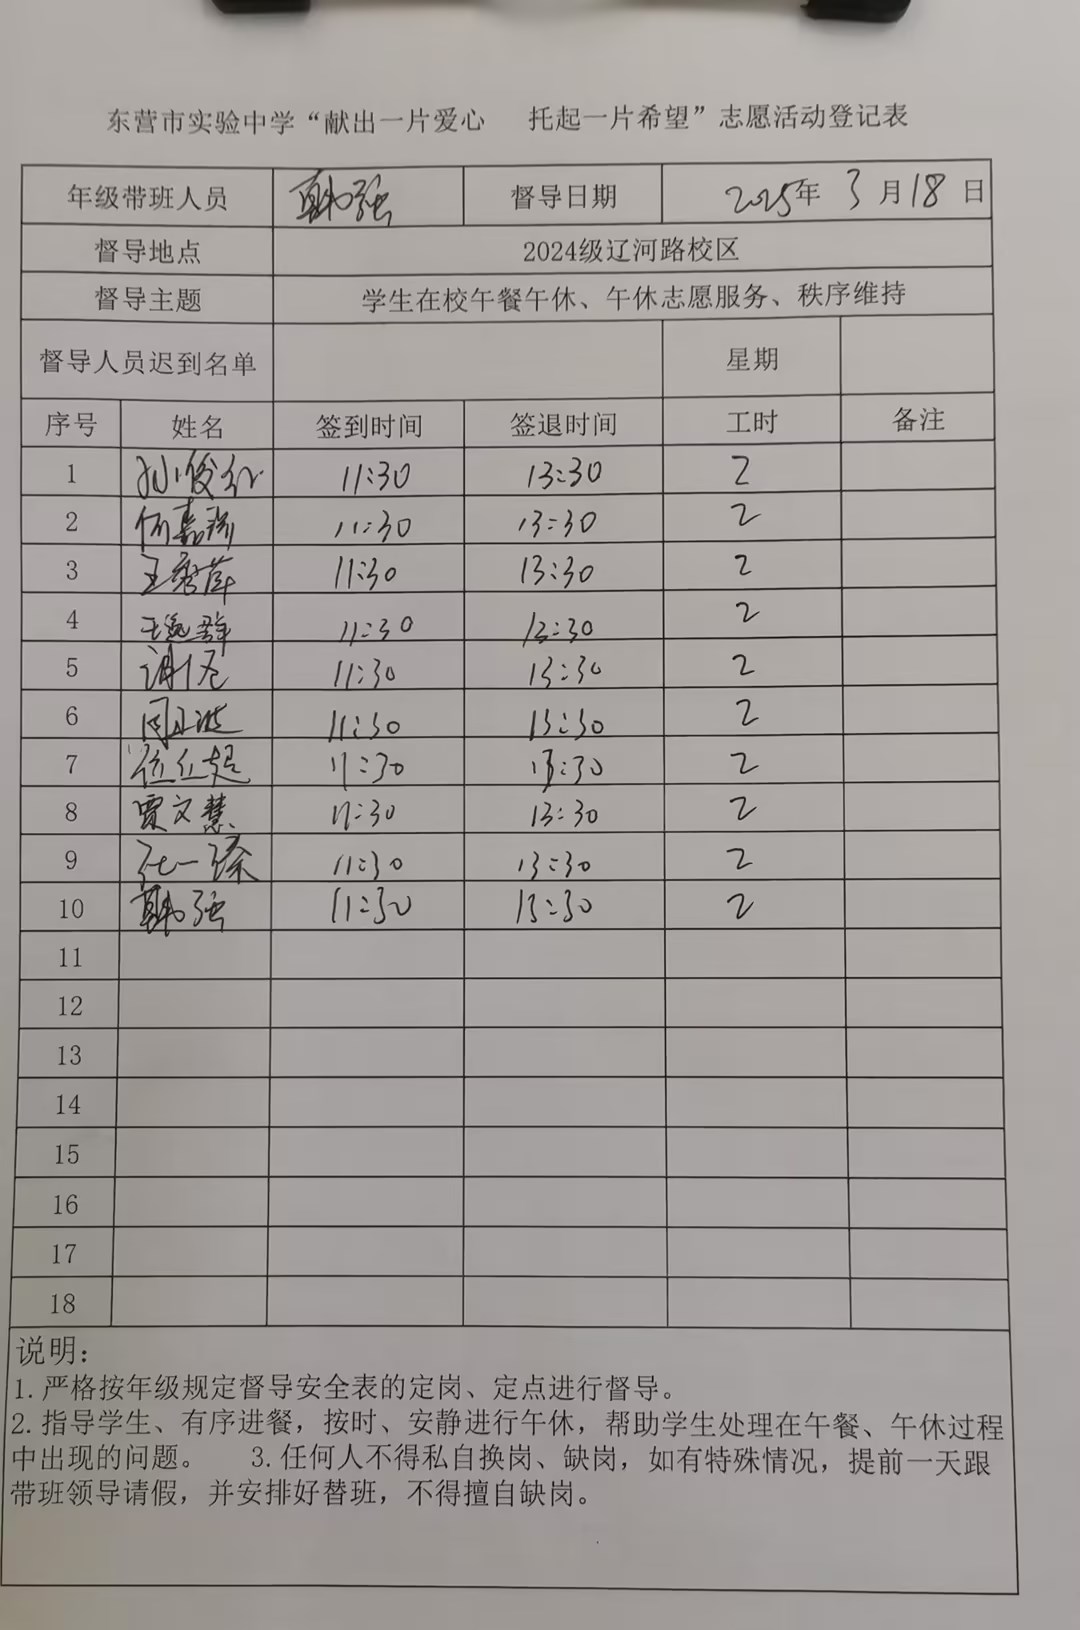 东营市实验中学“献出一片爱心 托起一片希望”志愿活动登记表
年级带班人员 韩强 督导日期 2025年 3月18日
督导地点 2024级辽河路校区
督导主题 学生在校午餐午休、午休志愿服务、秩序维持
督导人员迟到名单 星期
序号 姓名 签到时间 签退时间 工时 备注
1 11:30 13:30 2
2 11:30 13:30 2
3 王秀萍 11:30 13:30 2
4 11:30 13:30 2
5 11:30 13:30 2
6 11:30 13:30 2
7 11:30 13:30 2
8 贾文慧 11:30 13:30 2
9 11:30 13:30 2
10 韩强 11:30 13:30 2
11
12
13
14
15
16
17
18
说明：
1.严格按年级规定督导安全表的定岗、定点进行督导。
2.指导学生、有序进餐，按时、安静进行午休，帮助学生处理在午餐、午休过程
中出现的问题。 3.任何人不得私自换岗、缺岗，如有特殊情况，提前一天跟
带班领导请假，并安排好替班，不得擅自缺岗。